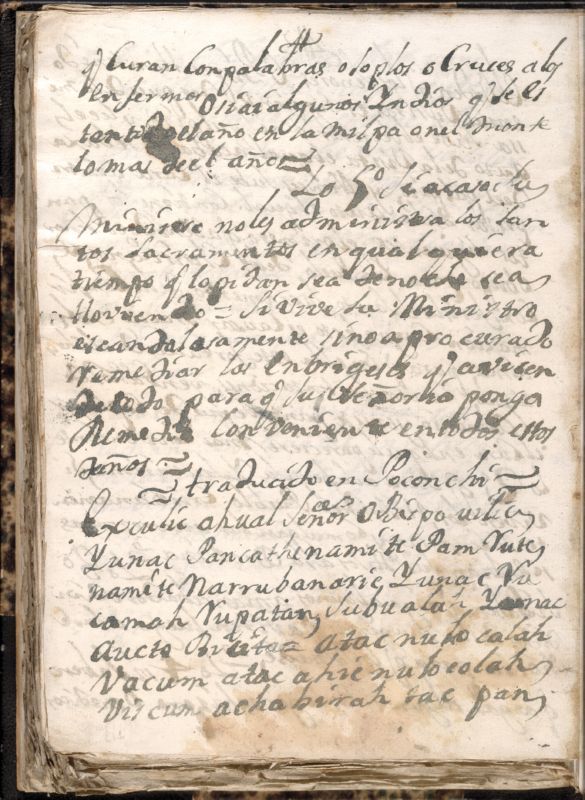 y Curan Con palabras o soplos o Cruces a los
enfermos o si ai algunos Yndios q se es
ten todo el año en la milpa o nel monte
lo mas de el año =
Lo 5º Si acaso su
Ministre no les administra los san
tos Sacramentos en qual quiera
tiempo q lo pidan sea de noche sea
lloviendo = Si vive su Ministro
escandalosamente sino a procurado
Remediar los y avisen
de todo para q su Señoria ponga
Remedio Conveniente en todos estos
daños =
= traducido en Poconchi =
ahual Señor Obispo
Yunac Pancathenamite Pam Yute
namite Narrubanarie Yunac Yu
camah Yupatan Subualah Yunac
aucto atac nulocalah
Vacum atac ahie nuloeolah
Viscum achabirah tac pan